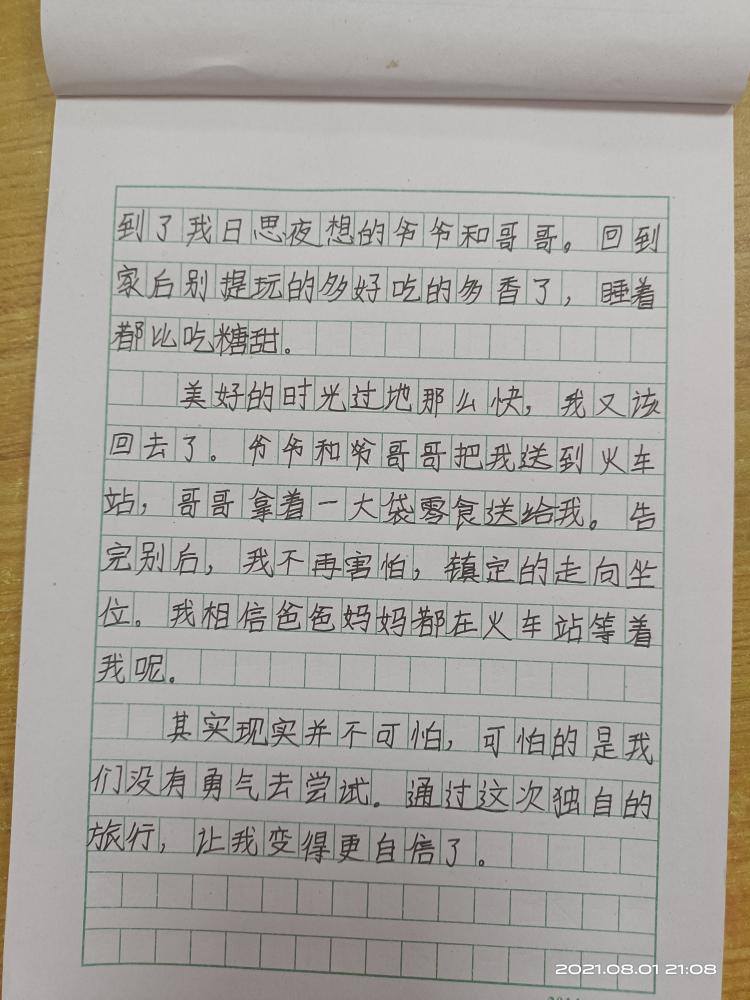 到了我日思夜想的爷爷和哥哥。回到
家后别提玩的多好吃的多香了，睡着
都比吃糖甜。
美好的时光过地那么快，我又该
回去了。爷爷和爷哥哥把我送到火车
站，哥哥拿着一大袋零食送给我。告
完别后，我不再害怕，镇定的走向坐
位。我相信爸爸妈妈都在火车站等着
我呢。
其实现实并不可怕，可怕的是我
们没有勇气去尝试。通过这次独自的
旅行，让我变得更自信了。
2021.08.01 21:08